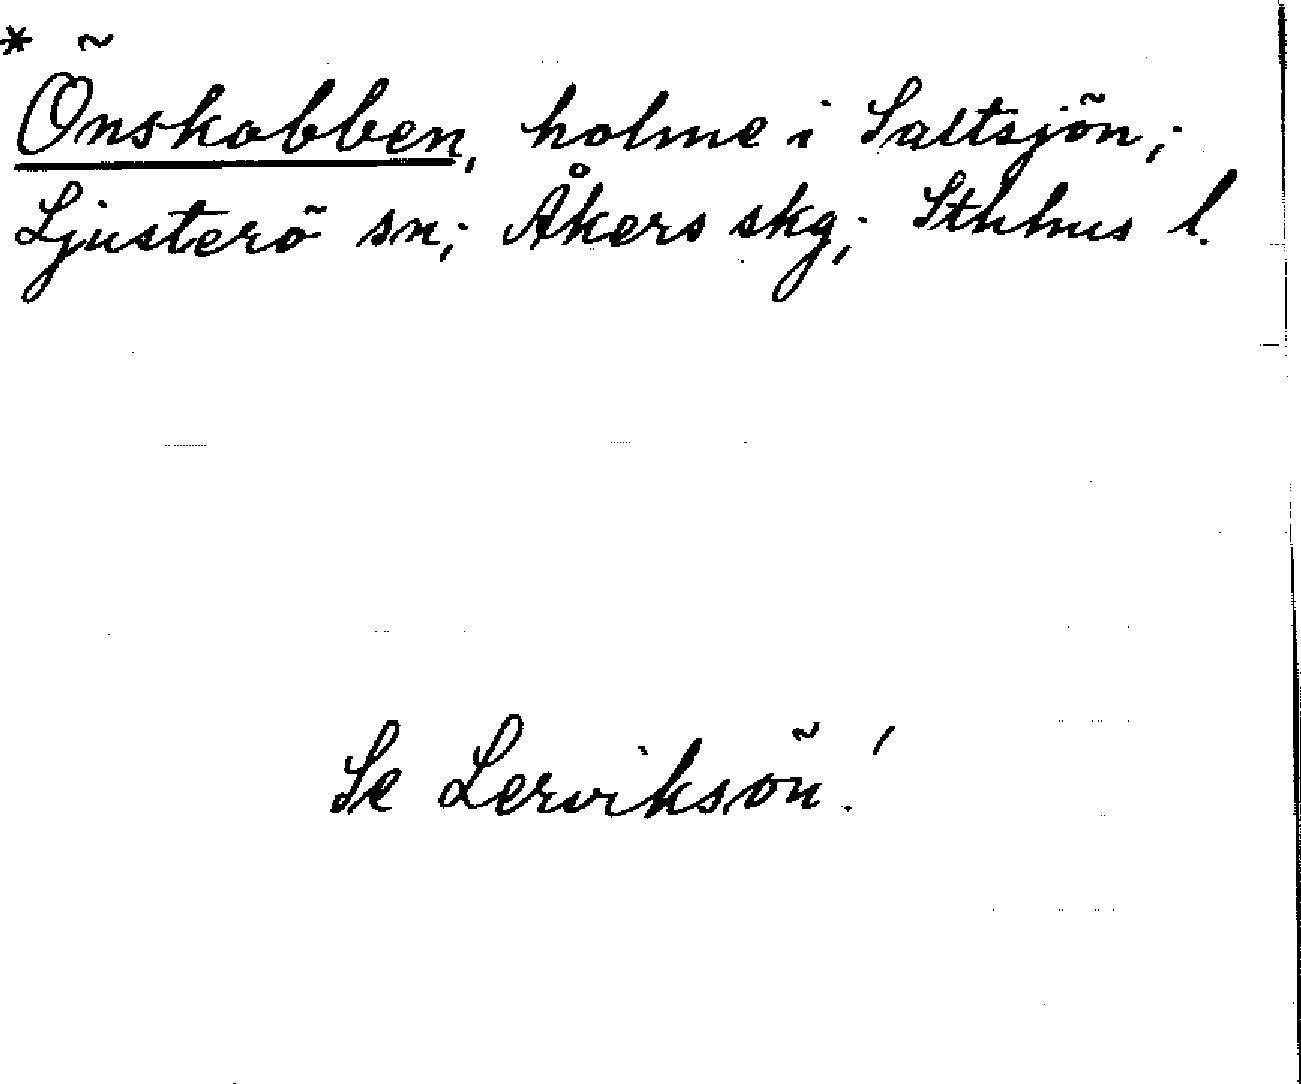 * Önskobben, holme i Saltsjön;
Ljusterö sn; Åkers skg; Sthlms l.
Se Lerviksön!